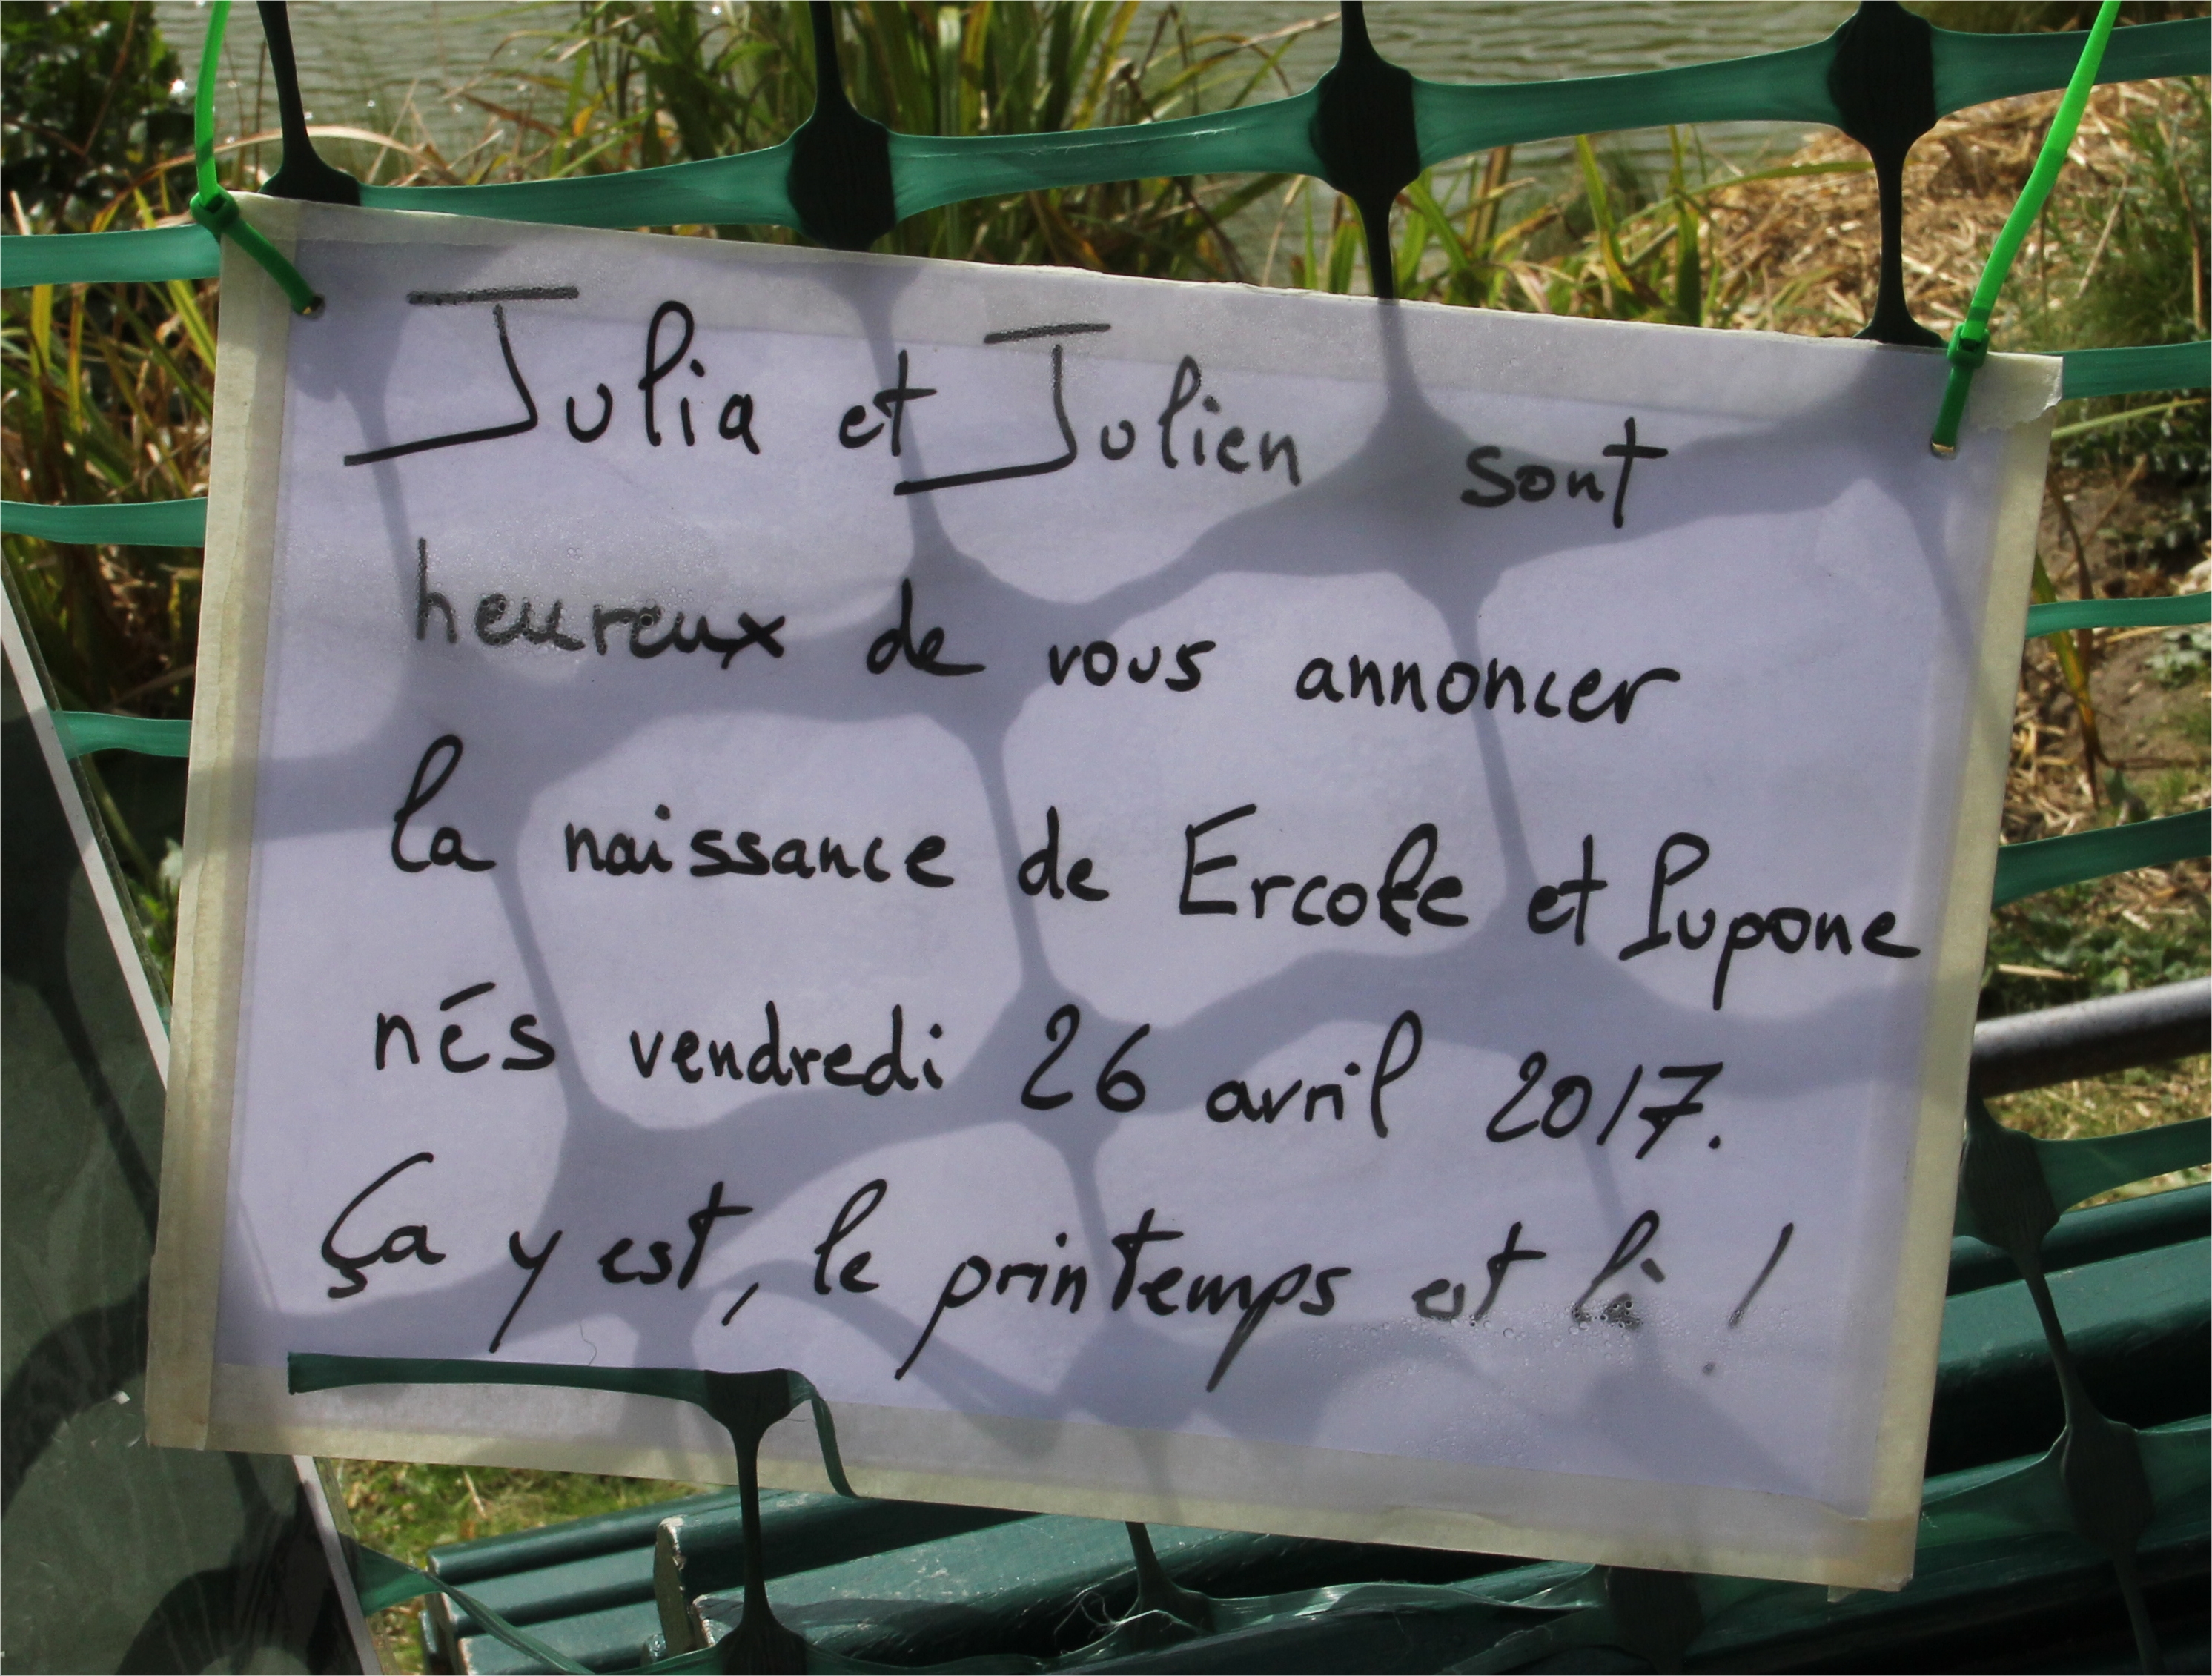 Julia et Julien sont
heureux de vous annoncer
la naissance de Ercole et Pupone
nés vendredi 26 avril 2017.
Ça y est, le printemps est là !